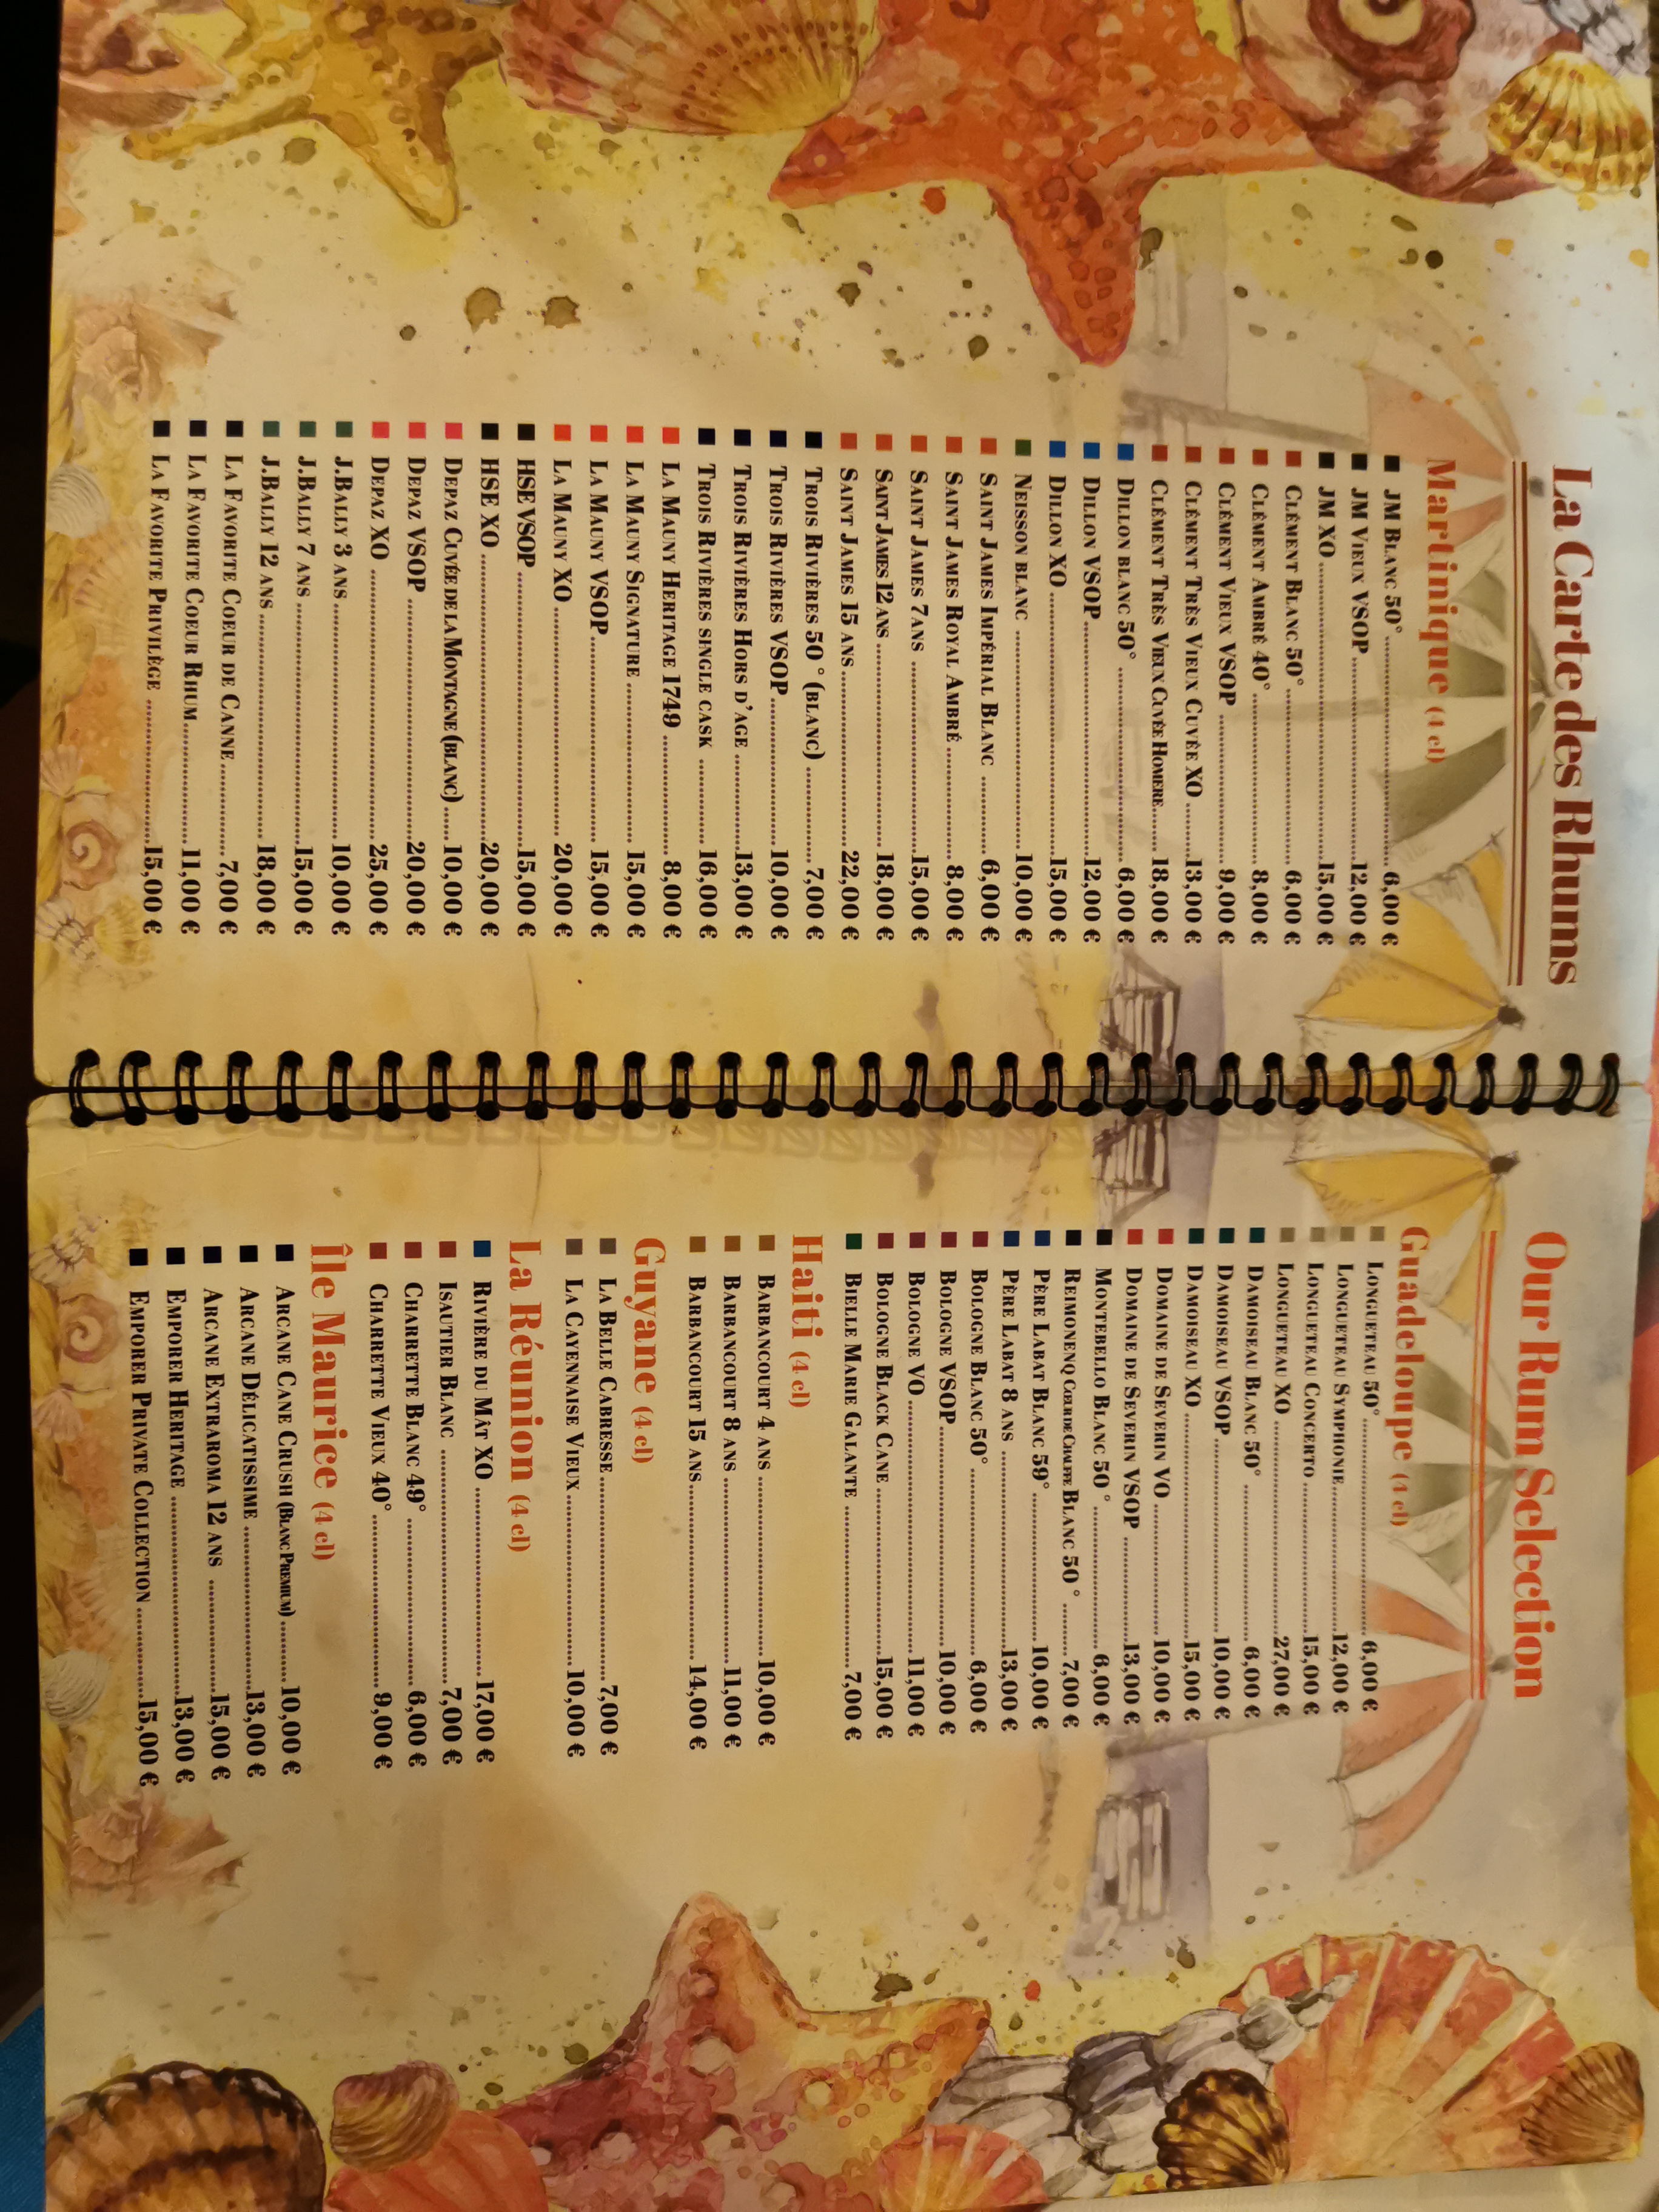 La Carte des Rhums
Martinique (4 cl)
JM Blanc 50° 6,00 €
JM Vieux VSOP 12,00 €
JM XO 15,00 €
Clément Blanc 50° 6,00 €
Clément Ambré 40° 8,00 €
Clément Vieux VSOP 9,00 €
Clément Très Vieux Cuvée XO 13,00 €
Clément Très Vieux Cuvée Homère 18,00 €
Dillon blanc 50° 6,00 €
Dillon VSOP 12,00 €
Dillon XO 15,00 €
Neisson blanc 10,00 €
Saint James Impérial Blanc 6,00 €
Saint James Royal Ambré 8,00 €
Saint James 7ans 15,00 €
Saint James 12ans 18,00 €
Saint James 15 ans 22,00 €
Trois Rivières 50 ° (blanc) 7,00 €
Trois Rivières VSOP 10,00 €
Trois Rivières Hors d'age 13,00 €
Trois Rivières single cask 16,00 €
La Mauny Heritage 1749 8,00 €
La Mauny Signature 15,00 €
La Mauny VSOP 15,00 €
La Mauny XO 20,00 €
HSE VSOP 15,00 €
HSE XO 20,00 €
Depaz Cuvée de la Montagne (blanc) 10,00 €
Depaz VSOP 20,00 €
Depaz XO 25,00 €
J.Bally 3 ans 10,00 €
J.Bally 7 ans 15,00 €
J.Bally 12 ans 18,00 €
La Favorite Coeur de Canne 7,00 €
La Favorite Coeur Rhum 11,00 €
La Favorite Privilège 15,00 €
Our Rum Selection
Guadeloupe (4 cl)
Longueteau 50° 6,00 €
Longueteau Symphonie 12,00 €
Longueteau Concerto 15,00 €
Longueteau XO 27,00 €
Damoiseau Blanc 50° 6,00 €
Damoiseau VSOP 10,00 €
Damoiseau XO 15,00 €
Domaine de Severin VO 10,00 €
Domaine de Severin VSOP 13,00 €
Montebello Blanc 50 ° 6,00 €
Reimonenq Cœur de Chauffe Blanc 50 ° 7,00 €
Père Labat Blanc 59° 10,00 €
Père Labat 8 ans 13,00 €
Bologne Blanc 50° 6,00 €
Bologne VSOP 10,00 €
Bologne VO 11,00 €
Bologne Black Cane 15,00 €
Bielle Marie Galante 7,00 €
Haiti (4 cl)
Barbancourt 4 ans 10,00 €
Barbancourt 8 ans 11,00 €
Barbancourt 15 ans 14,00 €
Guyane (4 cl)
La Belle Cabresse 7,00 €
La Cayennaise Vieux 10,00 €
La Réunion (4 cl)
Rivière du Mât XO 17,00 €
Isautier Blanc 7,00 €
Charrette Blanc 49° 6,00 €
Charrette Vieux 40° 9,00 €
Île Maurice (4 cl)
Arcane Cane Crush (Blanc Premium) 10,00 €
Arcane Délicatissime 13,00 €
Arcane Extraroma 12 ans 15,00 €
Emporer Heritage 13,00 €
Emporer Private Collection 15,00 €